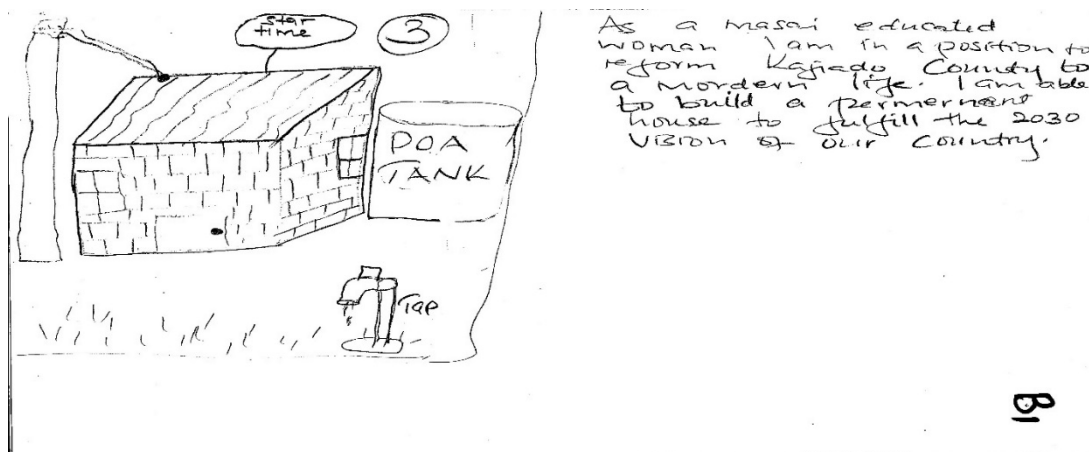 star
time
3
POA
TANK
Tap
As a masai educated
woman I am in a position to
reform Kajiado County to
a mordern life. I am able
to build a permernant
house to fulfill the 2030
vision of our country.
B1